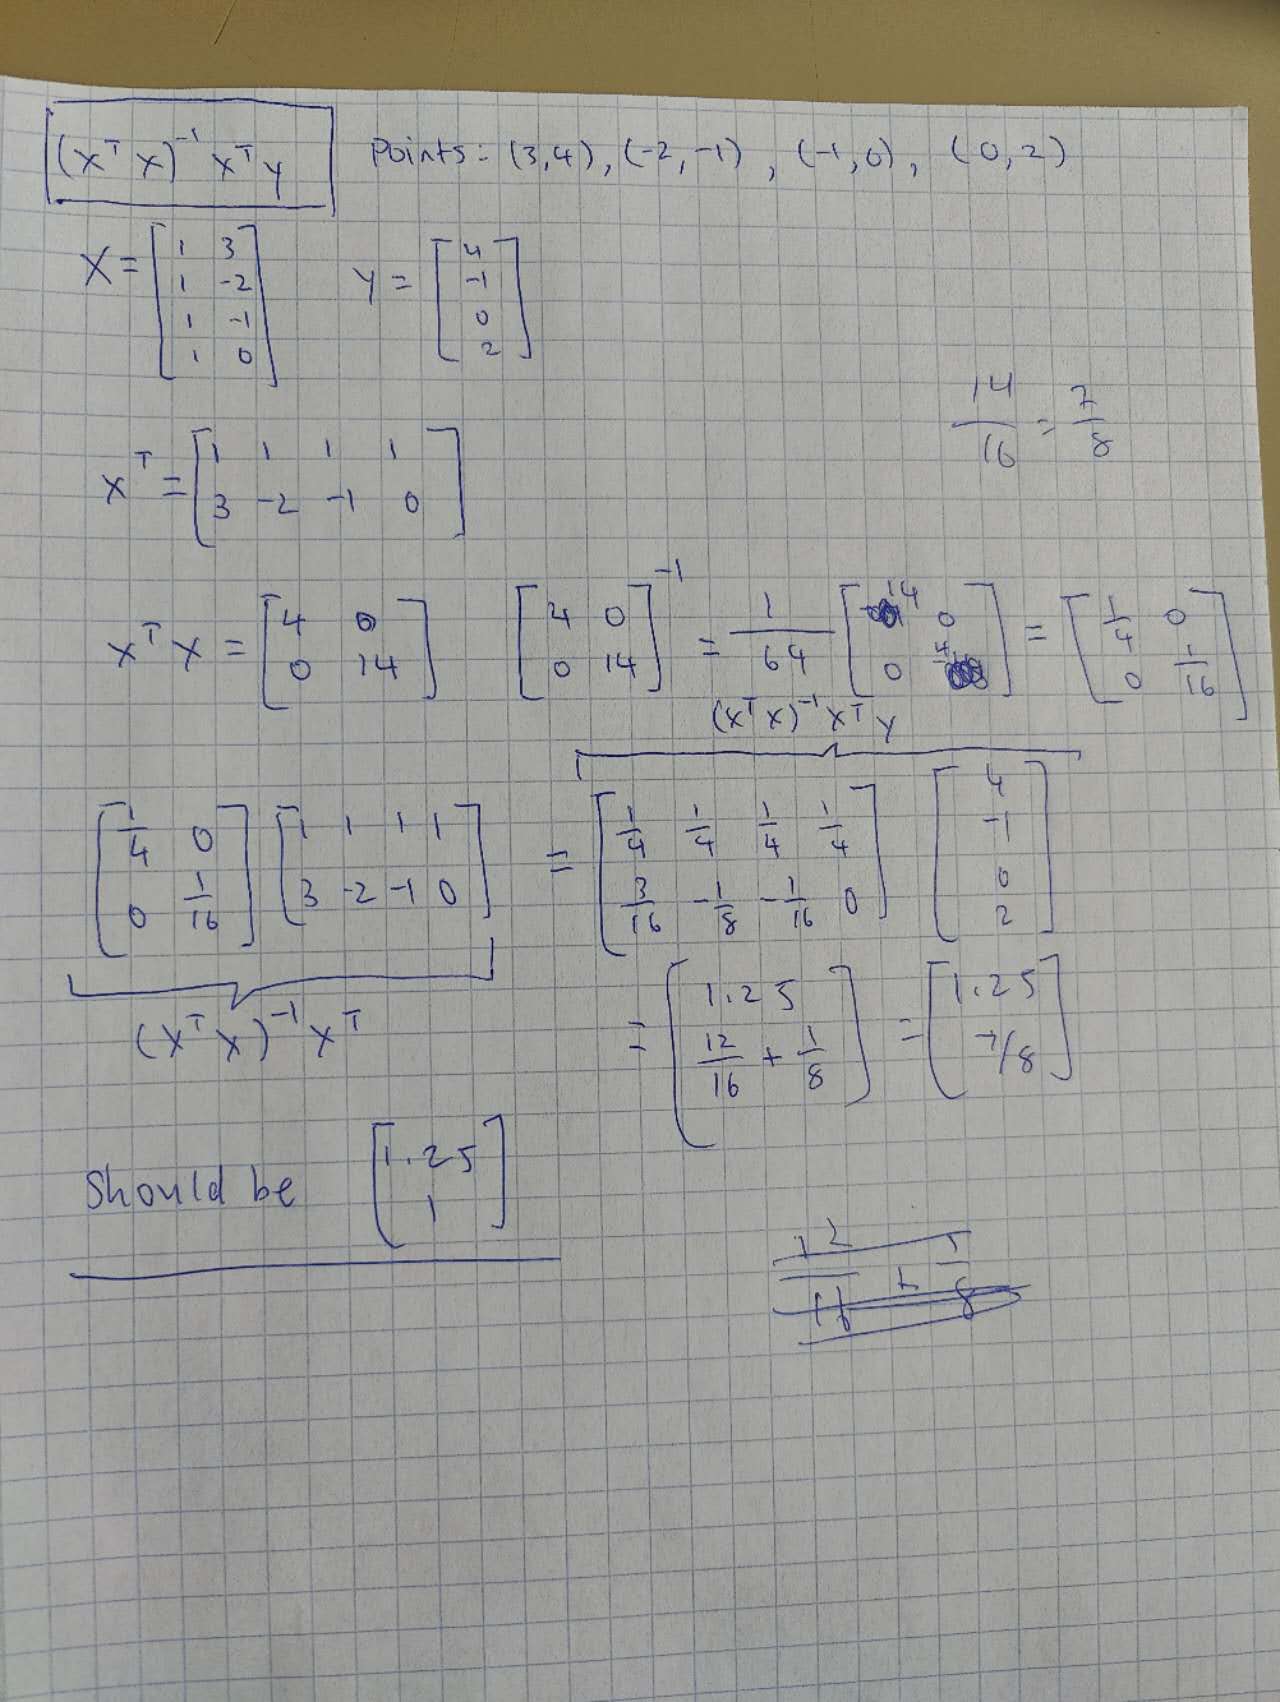 (X^T X)^-1 X^T Y Points: (3,4), (-2,-1), (-1,0), (0,2)
X = [1 3; 1 -2; 1 -1; 1 0] Y = [4; -1; 0; 2]
14/16 = 7/8
X^T = [1 1 1 1; 3 -2 -1 0]
X^T X = [4 0; 0 14] [4 0; 0 14]^-1 = 1/64 [14 0; 0 4] = [1/4 0; 0 1/16]
(X^T X)^-1 X^T Y
[1/4 0; 0 1/16] [1 1 1 1; 3 -2 -1 0] = [1/4 1/4 1/4 1/4; 3/16 -1/8 -1/16 0] [4; -1; 0; 2]
(X^T X)^-1 X^T
= [1.25; 12/16 + 1/8] = [1.25; 7/8]
Should be [1.25; 1]